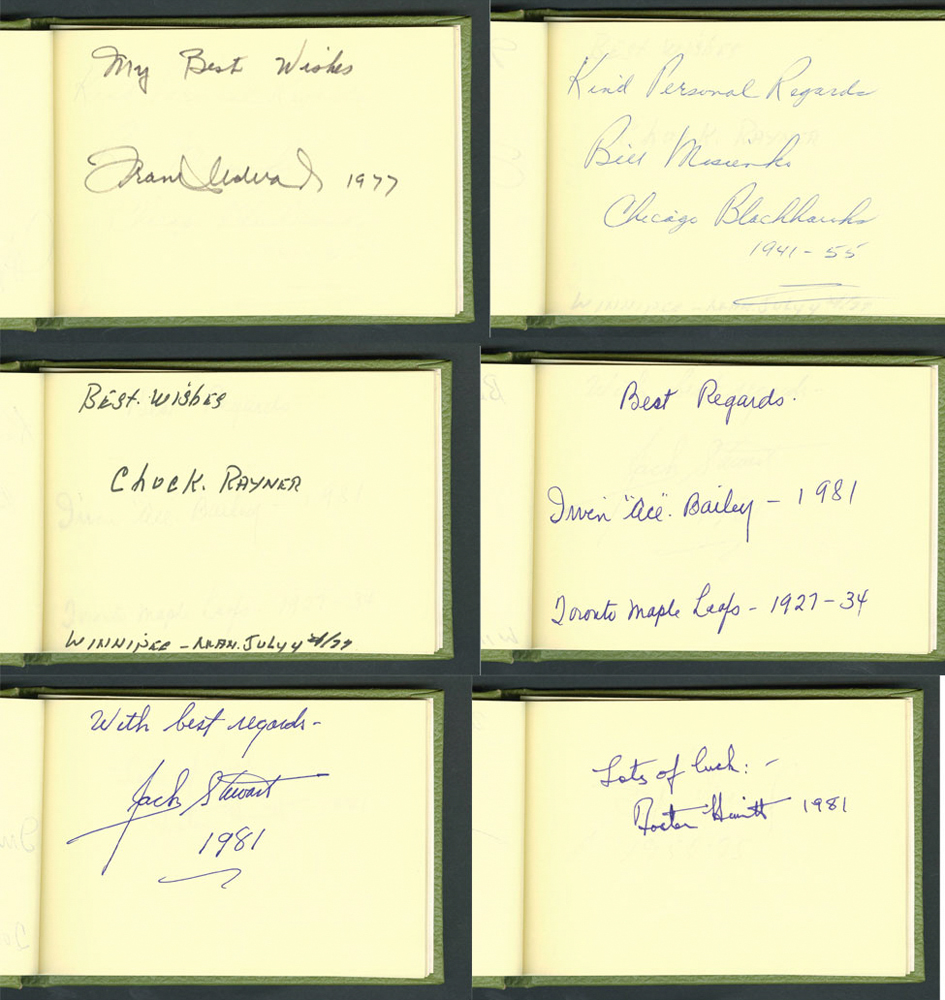 My Best Wishes
1977
Kind Personal Regards
Bill Mosienko
Chicago Blackhawks
1941-55
BEST. WISHES
ChucK. RAYNER
WINNIPEG - MAN. JULY
Best Regards.
Irvin "Ace". Bailey - 1981
Toronto Maple Leafs - 1927-34
With best regards-
Jack Stewart
1981
Lots of luck: -
Foster Hewitt 1981